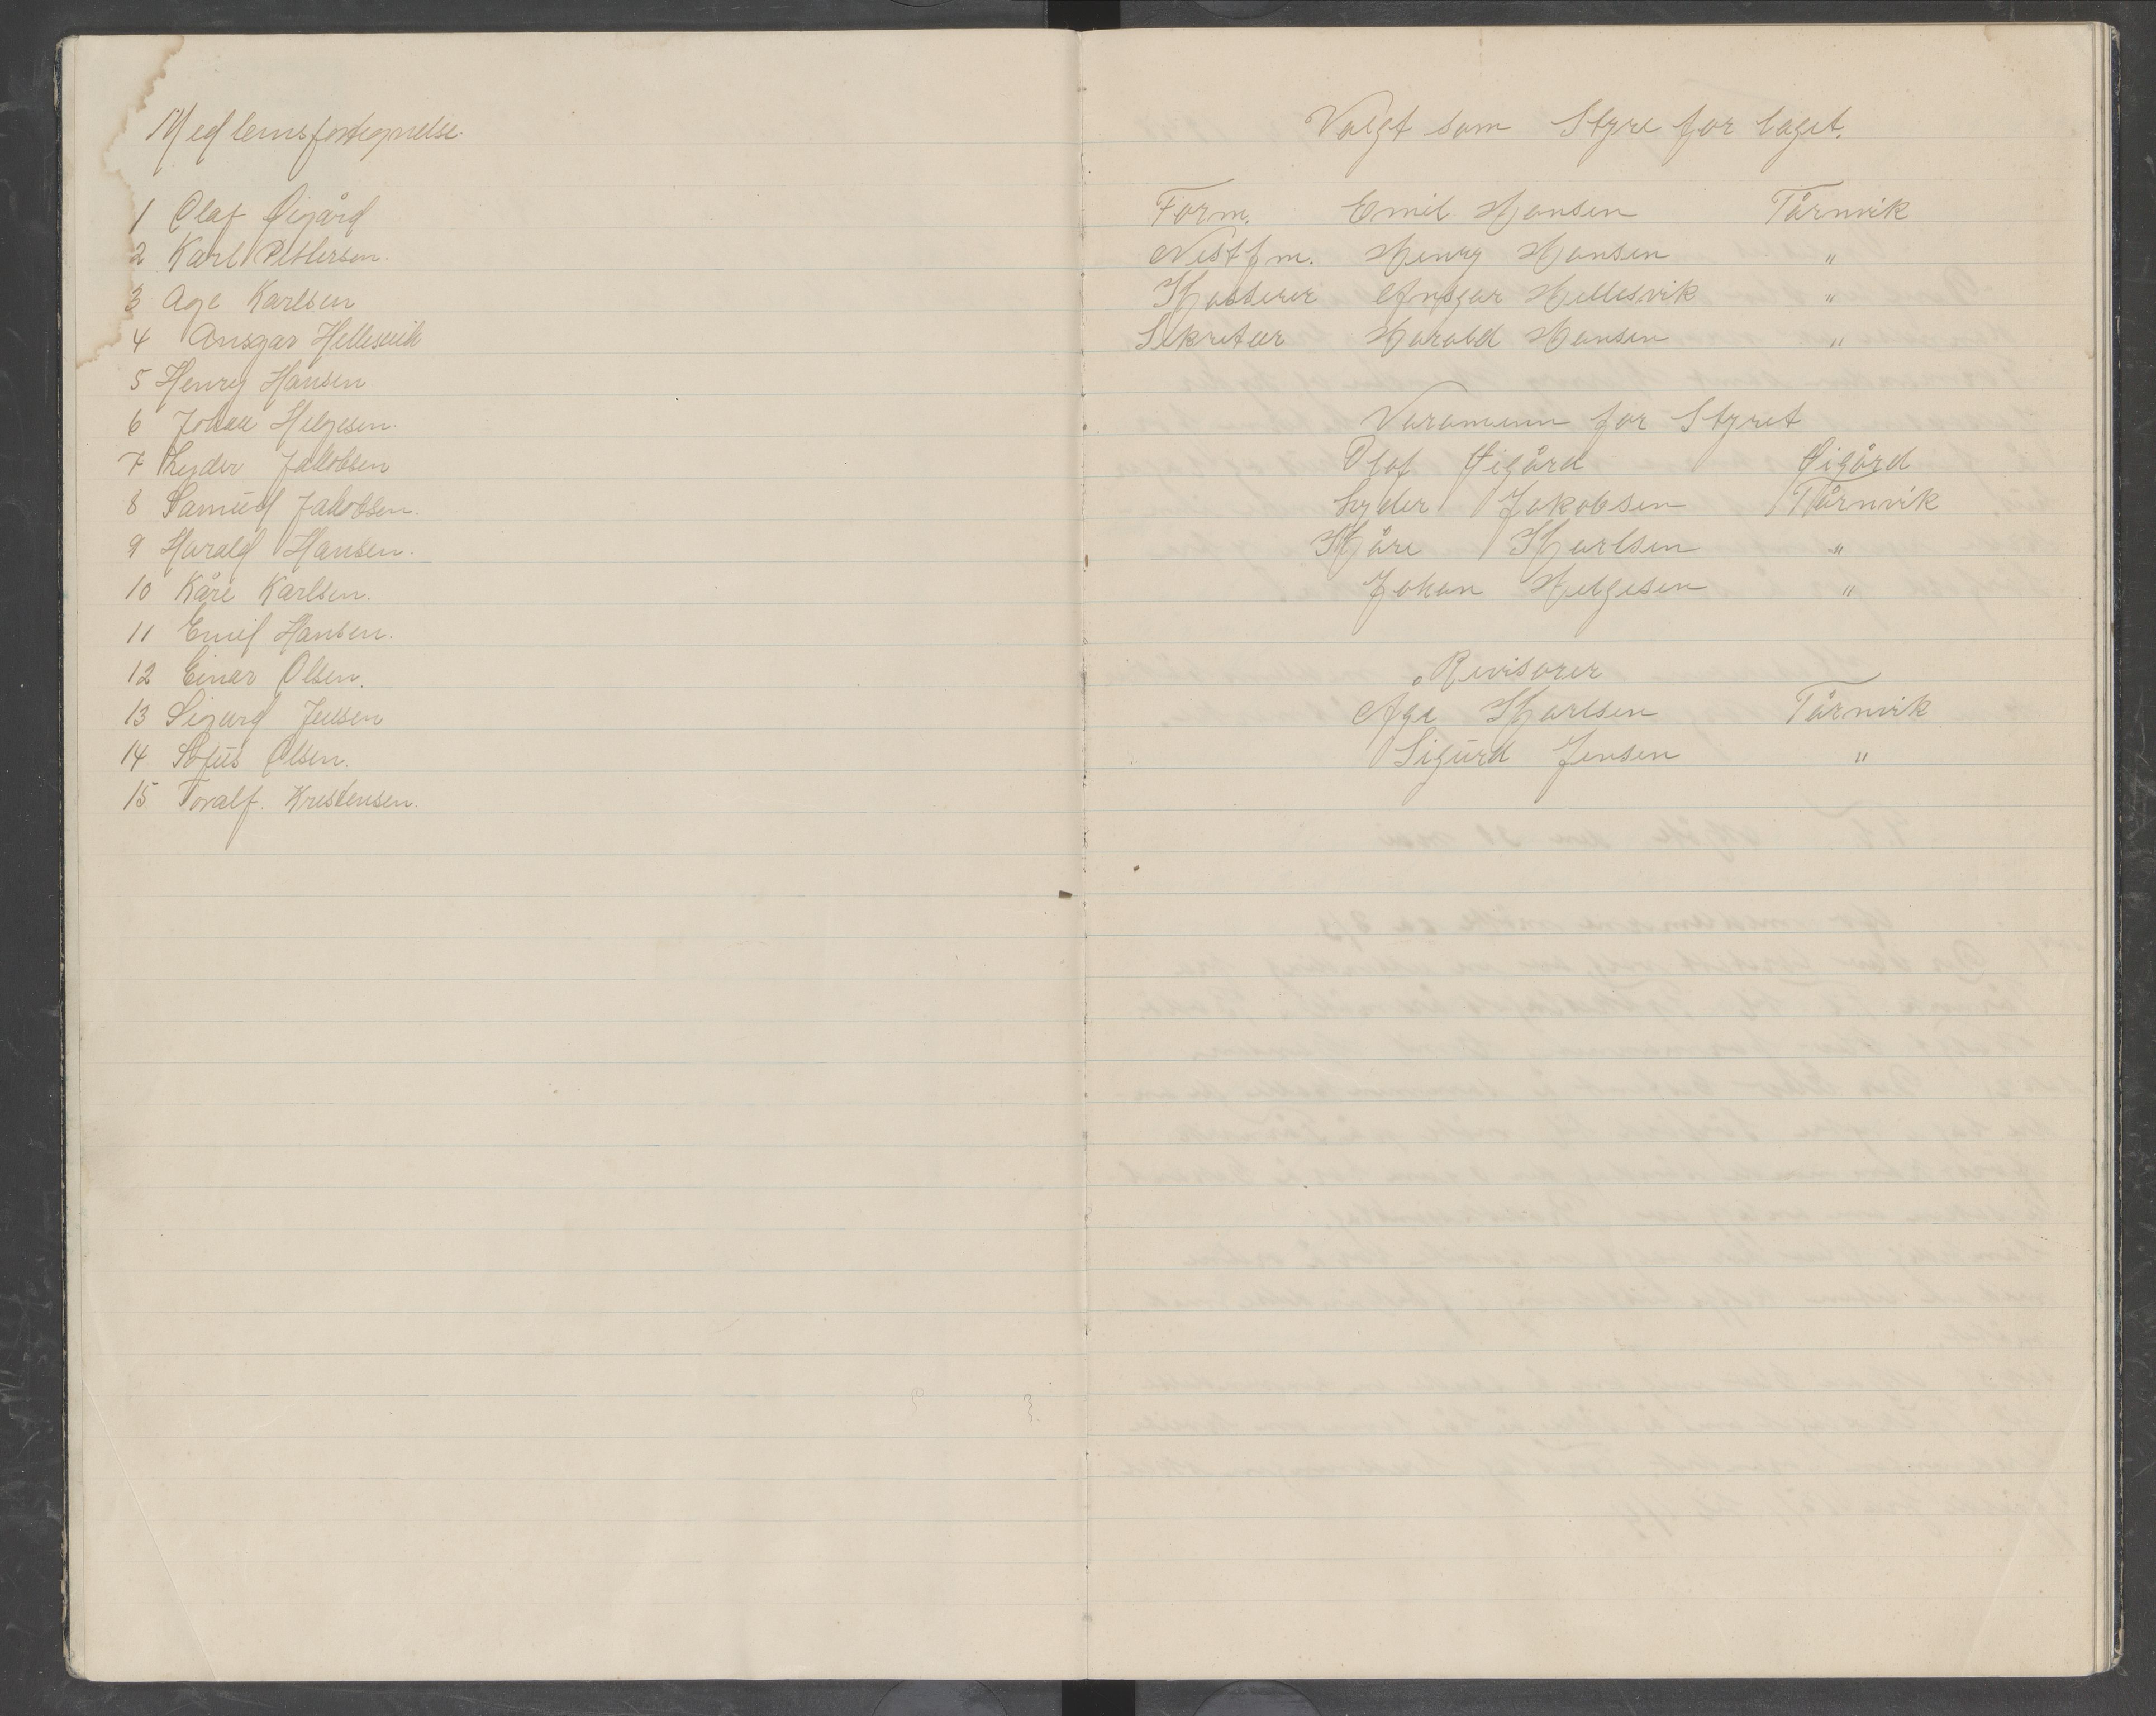 Medlemsfortegnelse.
1 Olaf Øigård
2 Karl Pettersen.
3 Åge Karlsen
4 Ansgar Hellesvik
5 Henry Hansen
6 Johan Helgesen.
7 Lyder Jakobsen
8 Samuel Jakobsen.
9 Harald Hansen.
10 Kåre Karlsen.
11 Emil Hansen.
12 Einar Olsen.
13 Sigurd Jensen
14 Sofus Olsen.
15 Toralf. Kristensen.
Valgt som Styre for laget.
Form. Emil Hansen Tårnvik
Nestfm. Henry Hansen "
Kasserer Ansgar Hellesvik "
Sekretær Harald Hansen "
Varamenn for Styret
Olaf Øigård Øigård
Lyder Jakobsen Tårnvik
Kåre Karlsen "
Johan Helgesen "
Revisorer
Åge Karlsen Tårnvik
Sigurd Jensen "